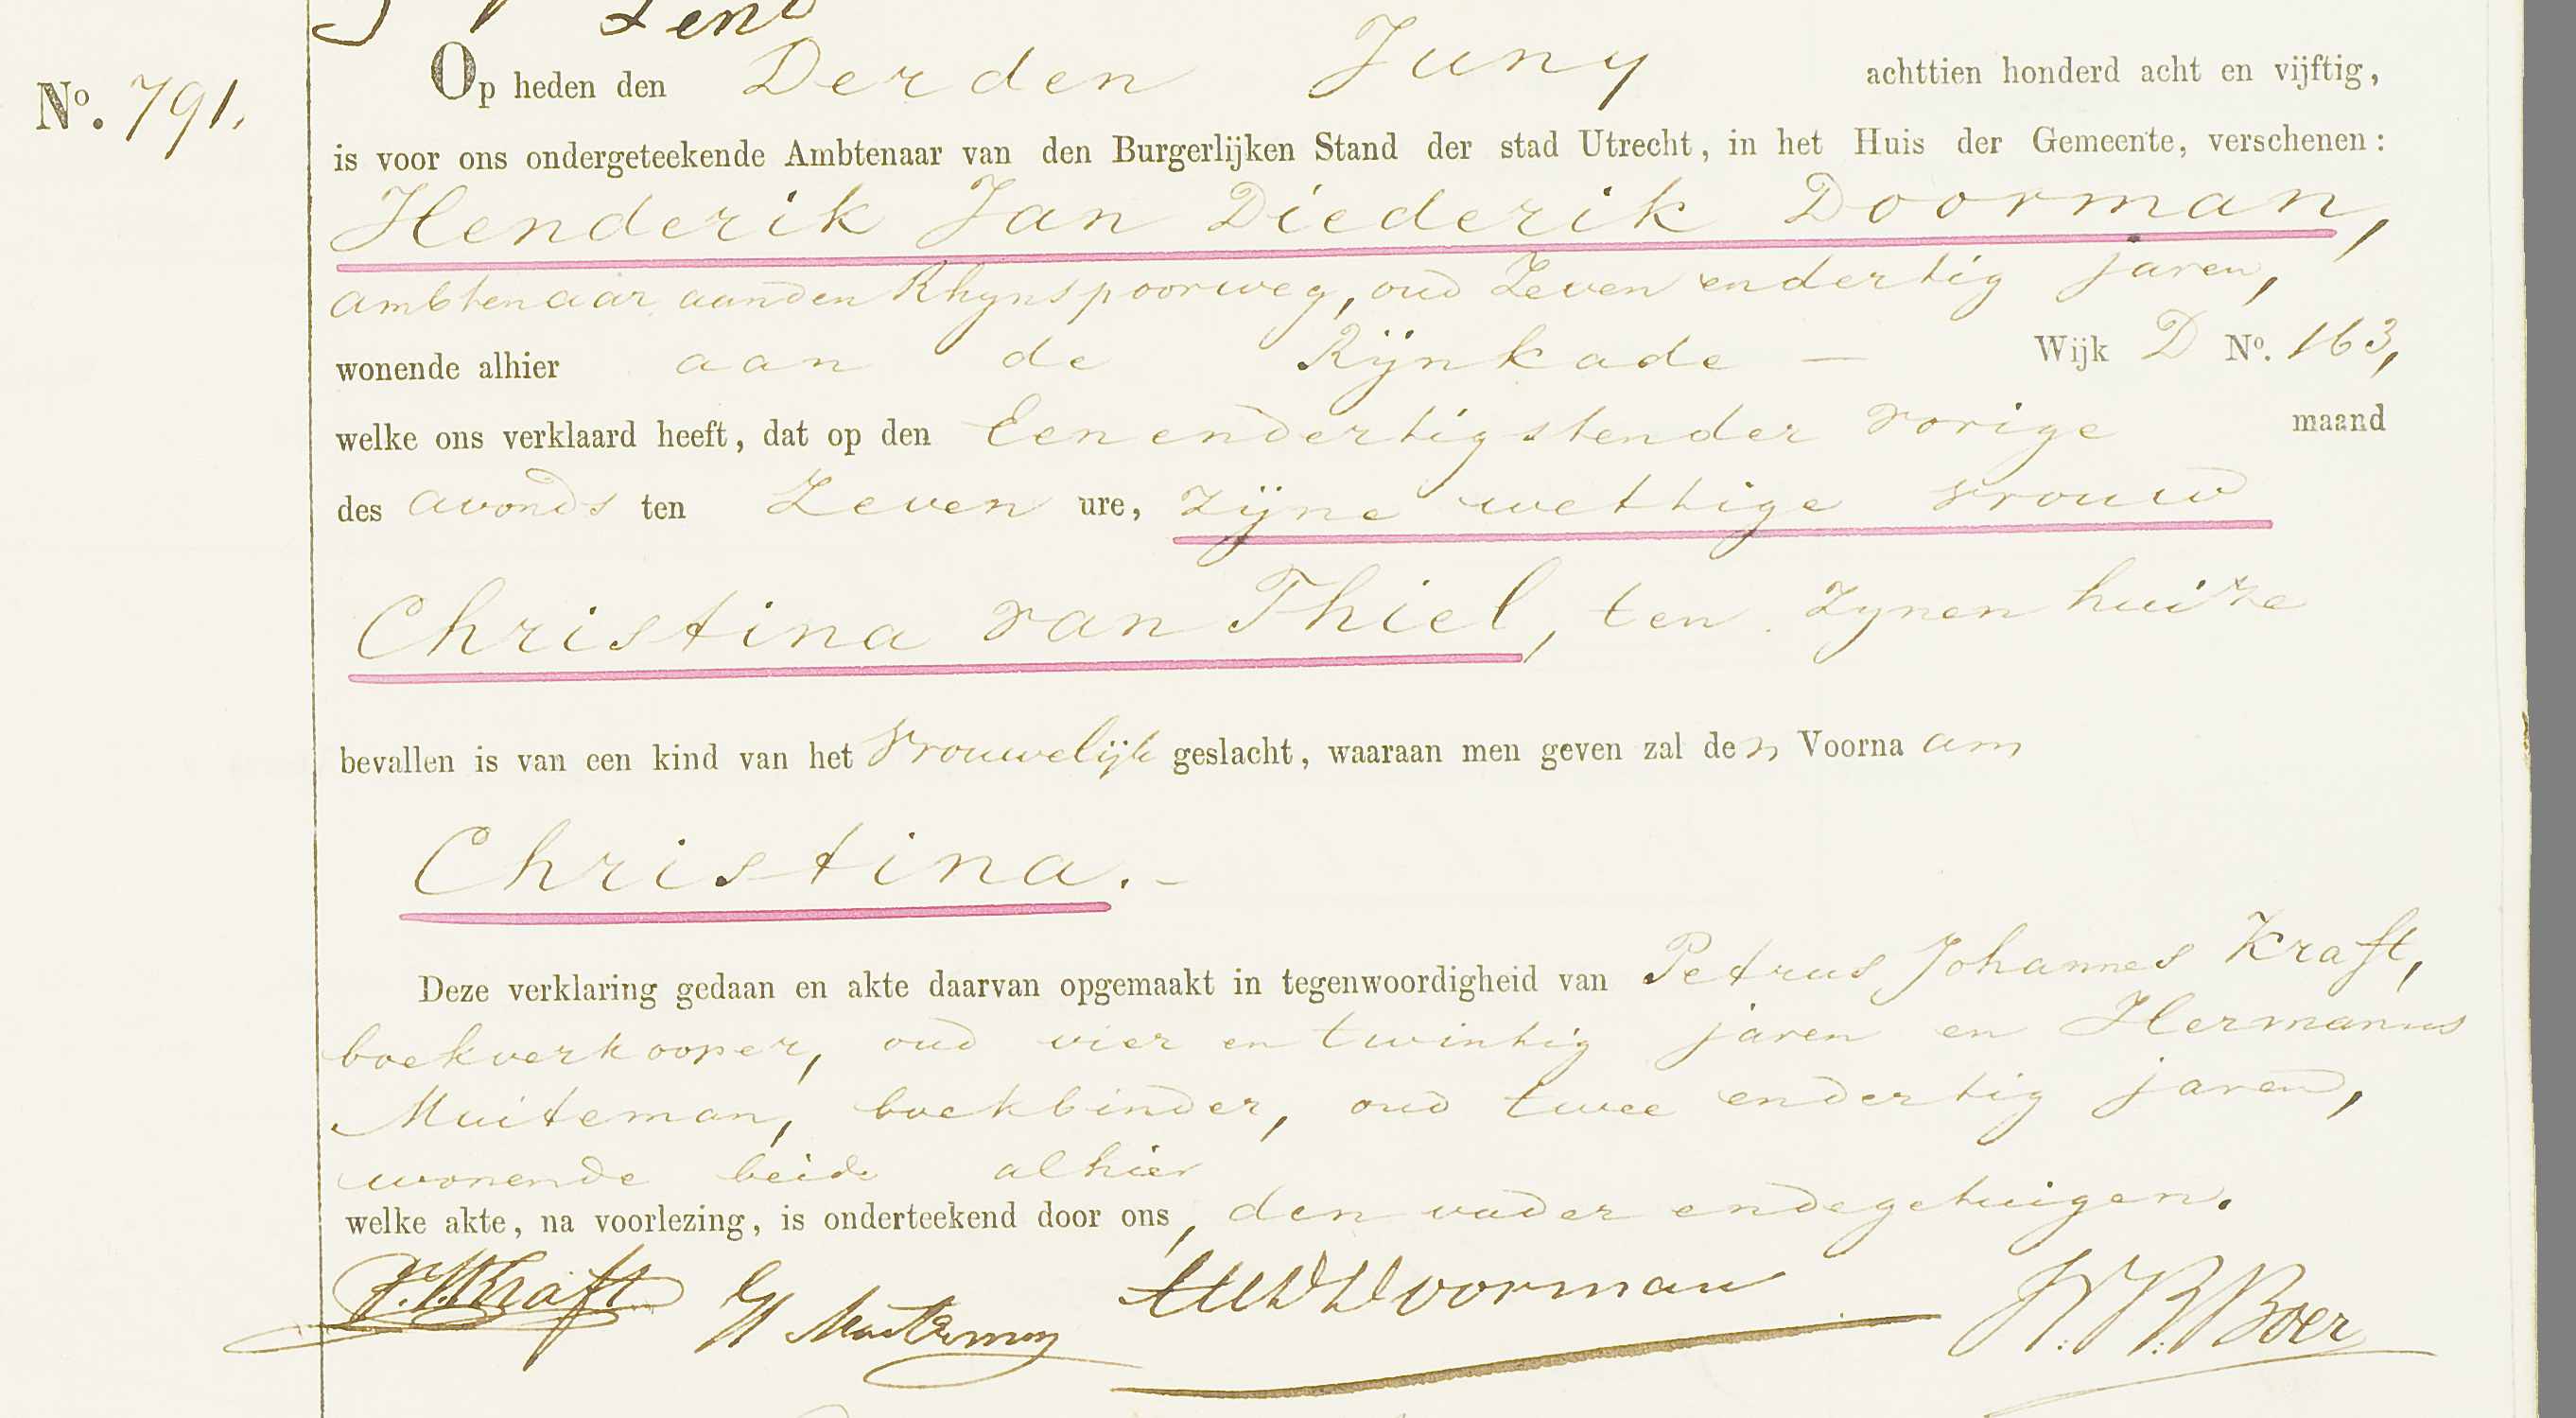 Op heden den Derden Juny achttien honderd acht en vijftig,
No. 791.
is voor ons ondergeteekende Ambtenaar van den Burgerlijken Stand der stad Utrecht, in het Huis der Gemeente, verschenen:
Henderik Jan Diederik Doorman,
ambtenaar aanden Rhynspoorweg, oud Zeven endertig jaren,
wonende alhier aan de Rijnkade — Wijk D No. 163,
welke ons verklaard heeft, dat op den Eenendertigstender vorige maand
des avonds ten Zeven ure, zijne wettige vrouw
Christina van Thiel, ten zynen huize
bevallen is van een kind van het vrouwelijk geslacht, waaraan men geven zal den Voornaam
Christina.-
Deze verklaring gedaan en akte daarvan opgemaakt in tegenwoordigheid van Petrus Johannes Kraft,
boekverkooper, oud vier en twintig jaren en Hermanus
Muiteman, boekbinder, oud twee endertig jaren,
wonende beide alhier
welke akte, na voorlezing, is onderteekend door ons, den vader endegetuigen.
P.J. Kraft H Muiteman HJD Doorman Boer